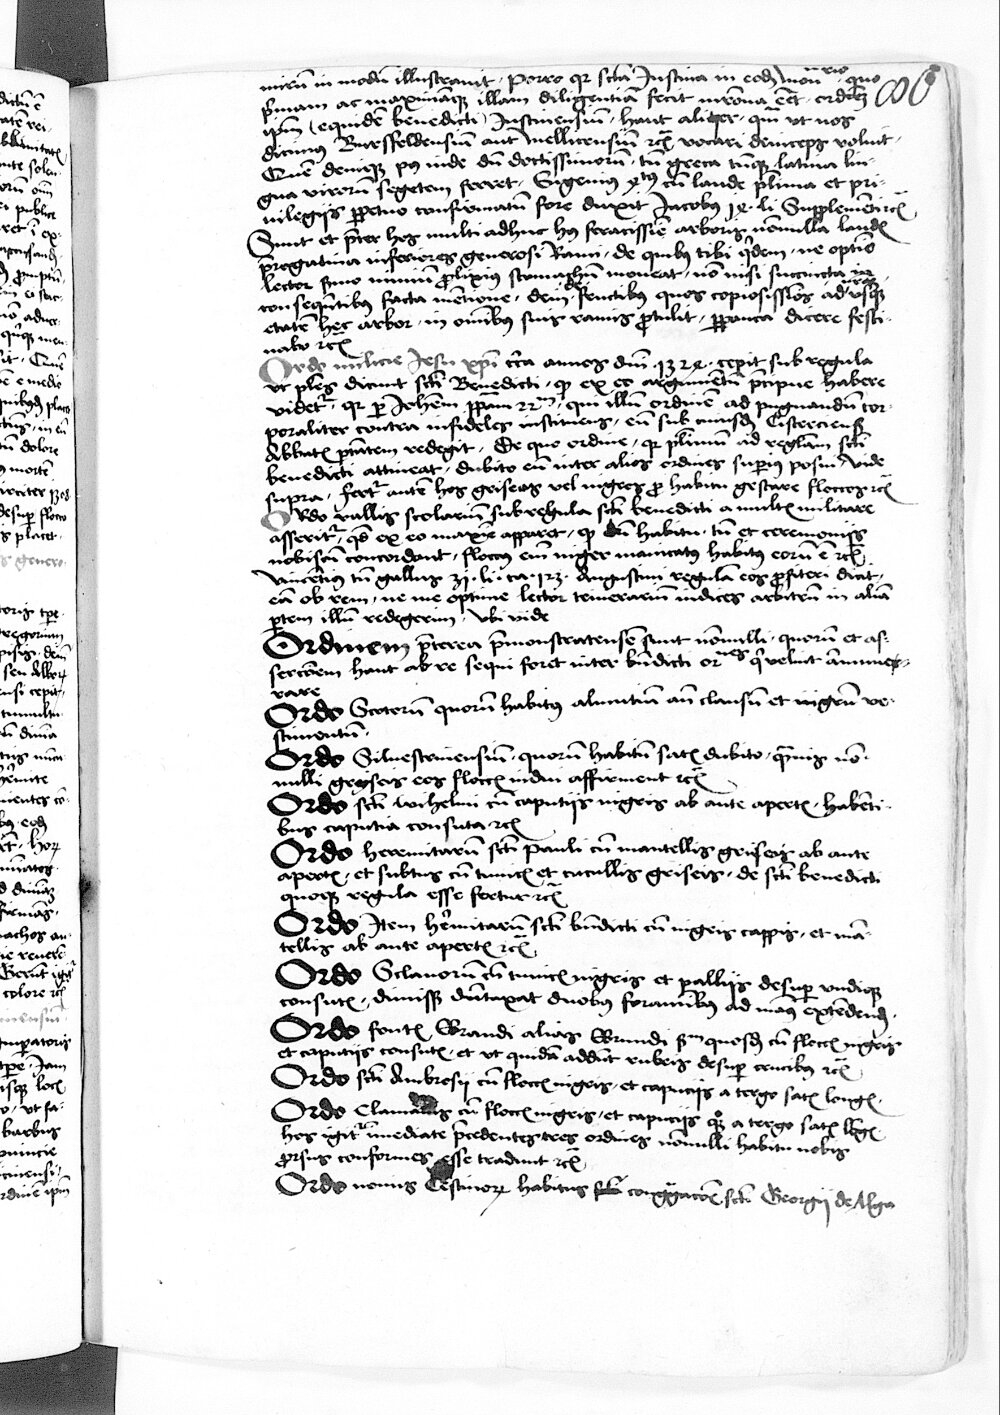 mirū in modū illustravit · Porro qr sctā Justina in eodē mon rio quo
pimam ac maximāqz illam diligentiā fecit nrōma eēt · ordinē
ipm (equidē benedicti) Justinensiū · haut aliter qm ut nos
dicimus Bursfeldensiū aut Mellicensiū rc vocari deinceps voluit ·
Quē deniqz pus inde dū doctissimorū, tū greca tūqz latina lin-
gua virorū segetem ferret · Eugenius 4tus cū laude plima et pri-
vilegijs ppetuo confirmatū fore duxit Jacobus 14 li Supplementi rc
Sunt et pter hos multi adhuc hus feracissie arboris nōnulla laudē
prerogativa inferiores generosi Rami, de quibus tibi qdem, ne optio
lector sumo nimiū prolixius stomachum moveat, nō nisi succincta in
consequētibus facta mētione, dein de fructibus quos copiosissios ad nram usqz
etatem hec arbor in omibus suis ramis protulit, ppauca dicere festi-
nabo rc
Ordo milicie Jesu xpi circa annos dni 1324 cepit sub regula
ut ples dicunt scti Benedicti, qz ex eo argumētū pcipue habere
videtr, qr p Johēm ppam 22m, qui illū ordinē ad pugnandū cor-
poraliter contra infideles instituens, eū sub cuiusdā Cisterciens
Abbatis ptatem redegit, De quo ordine, qr plimū ad reglam scti
benedicti attineat, dubito eū inter alios ordines supius posui vide
supra, fertr autē hos griseos vel nigros p habitu gestare floccos rc
Ordo vallis scolariū sub regula scti benedicti a multis militare
asseritr, qd ex eo maxie apparet, qz dū habitu, tū et ceremoniis
nobiscū concordant, floccus eni niger manicatus habitus eorū e rc
Vincētius tū gallus 31 li ca 123 Augustini regulā eos profiteri dicit,
eā ob rem, ne me optime lector temerariū iudices arbitrū in aliā
ptem illū redegerim, ubi vide
Ordinem pterea pmonstratensē sunt nōnulli, quorū et as-
sercōem haut ab re sequi foret inter bndicti ornes q velint annume-
rare
Ordo Scotorū quorū habitus alimentū an clausū et nigrū ve-
stimentū
Ordo Silvestrinensiū, quorū habitū satis dubito, qmvis nō-
nulli griseis eos floccis indui affirment rc
Ordo scti wilhelmi cū caputijs nigris ab ante apertis, habēti-
bus caputia consuta rc
Ordo heremitarū scti Pauli cū mantellis griseis ab ante
apertis, et subtus cū tunicis et cucullis griseis, de scti benedicti
quoqz regula esse fertur rc
Ordo Item hermitarū scti bndicti cū nigris cappis, et mā-
tellis ab ante apertis rc
Ordo Sclavorū cū tunicis nigris et pallijs desup undiqz
consutis, dimissis dūtaxat duobus foraminibus ad manus extendendū
Ordo fontis Ebrandi alias Ebrundi sm quosdā cū floccis nigris
et caputijs consutis, et ut quidā addūt rubeis desup crucibus rc
Ordo scti Ambrosij cū floccis nigris, et caputijs a tergo satis longis,
Ordo cū floccis nigris, et caputijs qz a tergo satis lōgis
hos igitr imediate pcedentes tres ordines nōnulli habitu nobis
prorsus conformes esse tradunt rc
Ordo novus Celestinorz habitus congregacōis scti Georgij de Alga